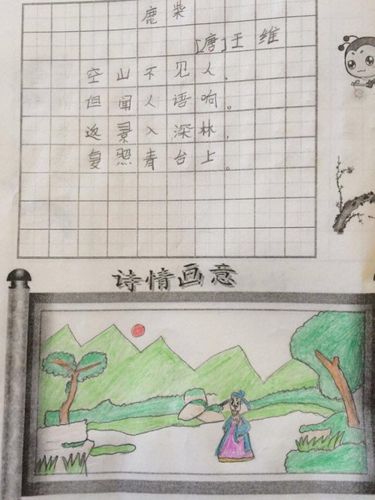 鹿柴
[唐]王维
空山不见人,
但闻人语响。
返景入深林,
复照青台上。
诗情画意